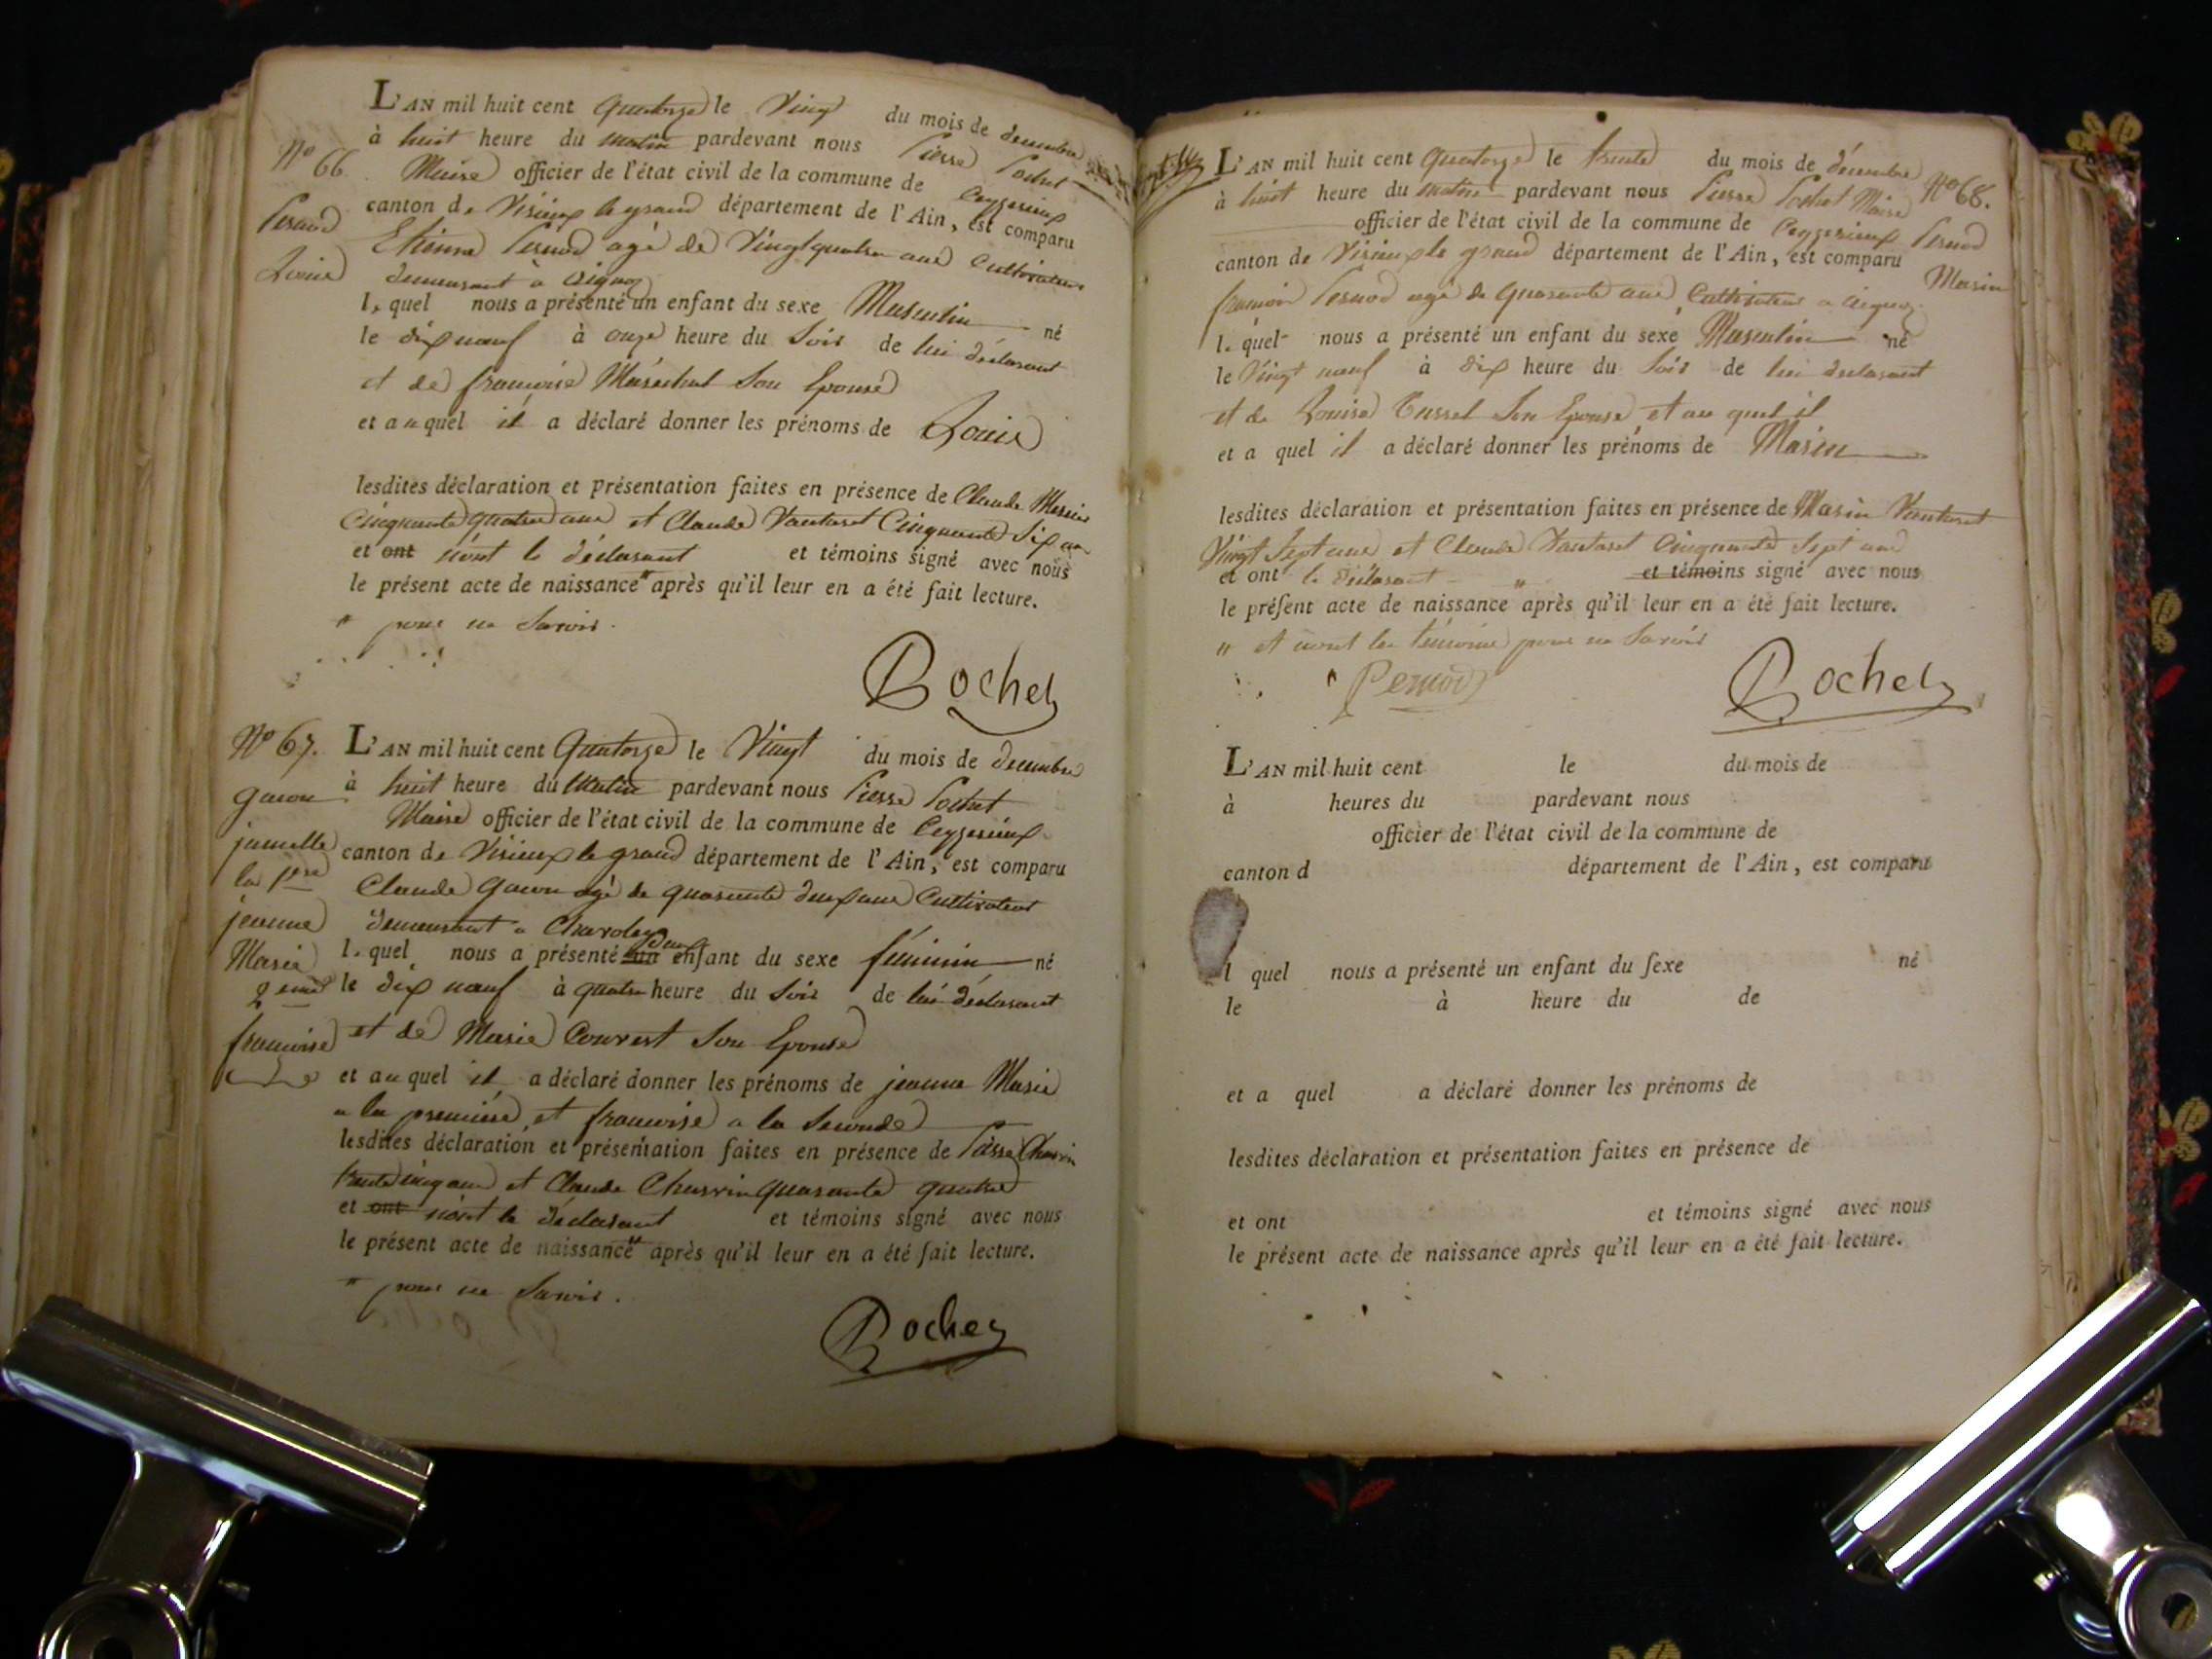 L'AN mil huit cent quatorze le Vingt du mois de decembre
à huit heure du matin pardevant nous Pierre Pochet
N° 66. Maire officier de l'état civil de la commune de Ceyzerieux
canton de Virieux le grand département de l'Ain, est comparu
Etienne Pernod agé de Vingt quatre ans Cultivateur
Louis demeurant à aignoz
l. quel nous a présenté un enfant du sexe Masculin né
le dix neuf à onze heure du Soir de lui déclarant
et de françoise Maréchal Son Epouse
et auquel il a déclaré donner les prénoms de Louis
lesdites déclaration et présentation faites en présence de Claude
Cinquante quatre ans et Claude Vantaret Cinquante Six ans
et ont n'ont le déclarant et témoins signé avec nous
le présent acte de naissance " après qu'il leur en a été fait lecture.
" pour ne Savoir.
Pochet
N° 67. L'AN mil huit cent Quatorze le Vingt du mois de decembre
gacon à huit heure du Matin pardevant nous Pierre Pochet
Maire officier de l'état civil de la commune de Ceyzerieux
jumelle canton de Virieux le grand département de l'Ain, est comparu
la 1ere Claude gacon agé de quarante deux ans Cultivateur
jeanne demeurant a
Marie l. quel nous a présenté un deux enfant du sexe féminin né
2eme le dix neuf à quatre heure du Soir de lui déclarant
françoise et de Marie Couvert Son Epouse
et au quel il a déclaré donner les prénoms de jeanne Marie
a la première et françoise a la Seconde
lesdites déclaration et présentation faites en présence de Pierre Charvin
trente cinq ans et Claude Charvin quarante quatre
et ont n'ont le déclarant et témoins signé avec nous
le présent acte de naissance " après qu'il leur en a été fait lecture.
" pour ne Savoir.
Pochet
L'AN mil huit cent Quatorze le trente du mois de décembre
à huit heure du matin pardevant nous Pierre Pochet Maire N° 68.
officier de l'état civil de la commune de Ceyzerieux Pernod
canton de Virieux le grand département de l'Ain, est comparu
Marin
Pernod agé de quarante ans Cultivateur a aignoz
l. quel nous a présenté un enfant du sexe Masculin né
le Vingt neuf à dix heure du Soir de lui déclarant
et de Louise Son Epouse et au quel il
et a quel il a déclaré donner les prénoms de Marin
lesdites déclaration et présentation faites en présence de Marin Vantaret
Vingt Sept ans et Claude Vantaret Cinquante Sept ans
et ont le déclarant " et témoins signé avec nous
le présent acte de naissance " après qu'il leur en a été fait lecture.
" et n'ont les témoins pour ne Savoir
Pernod Pochet
L'AN mil huit cent le du mois de
à heures du pardevant nous
officier de l'état civil de la commune de
canton d département de l'Ain, est comparu
l quel nous a présenté un enfant du sexe né
le à heure du de
et a quel a déclaré donner les prénoms de
lesdites déclaration et présentation faites en présence de
et ont et témoins signé avec nous
le présent acte de naissance après qu'il leur en a été fait lecture.